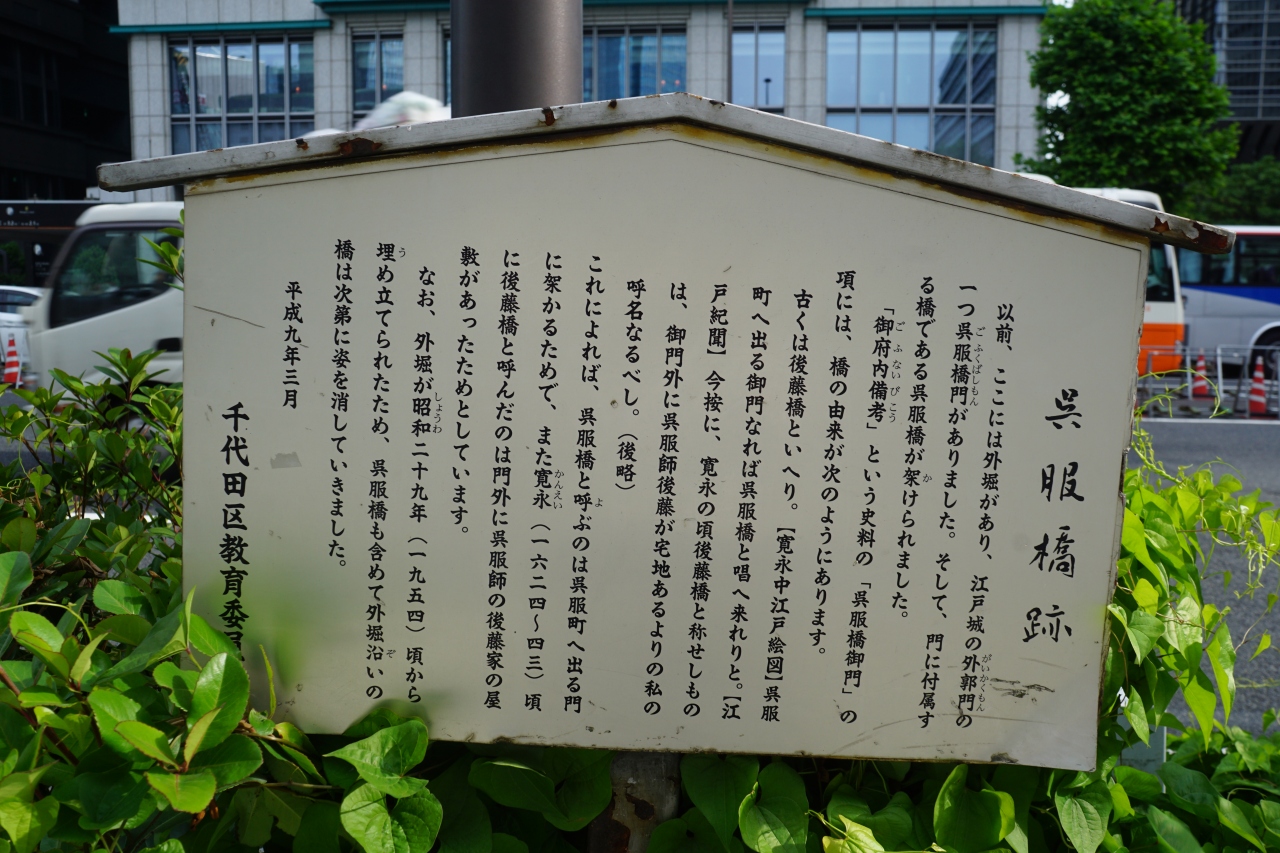 呉服橋跡
以前、ここには外堀があり、江戸城の外郭門の
がいかくもん
一つ呉服橋門がありました。そして、門に付属す
ごふくばしもん
る橋である呉服橋が架けられました。
か
「御府内備考」という史料の「呉服橋御門」の
ごふないびこう
項には、橋の由来が次のようにあります。
古くは後藤橋といへり。【寛永中江戸絵図】呉服
町へ出る御門なれば呉服橋と唱へ来れりと。【江
戸紀聞】今按に、寛永の頃後藤橋と称せしもの
は、御門外に呉服師後藤が宅地あるよりの私の
呼名なるべし。（後略）
これによれば、呉服橋と呼ぶのは呉服町へ出る門
よ
に架かるためで、また寛永（一六二四～四三）頃
かんえい
に後藤橋と呼んだのは門外に呉服師の後藤家の屋
敷があったためとしています。
なお、外堀が昭和二十九年（一九五四）頃から
しょうわ
埋め立てられたため、呉服橋も含めて外堀沿いの
う
ぞ
橋は次第に姿を消していきました。
平成九年三月
千代田区教育委員